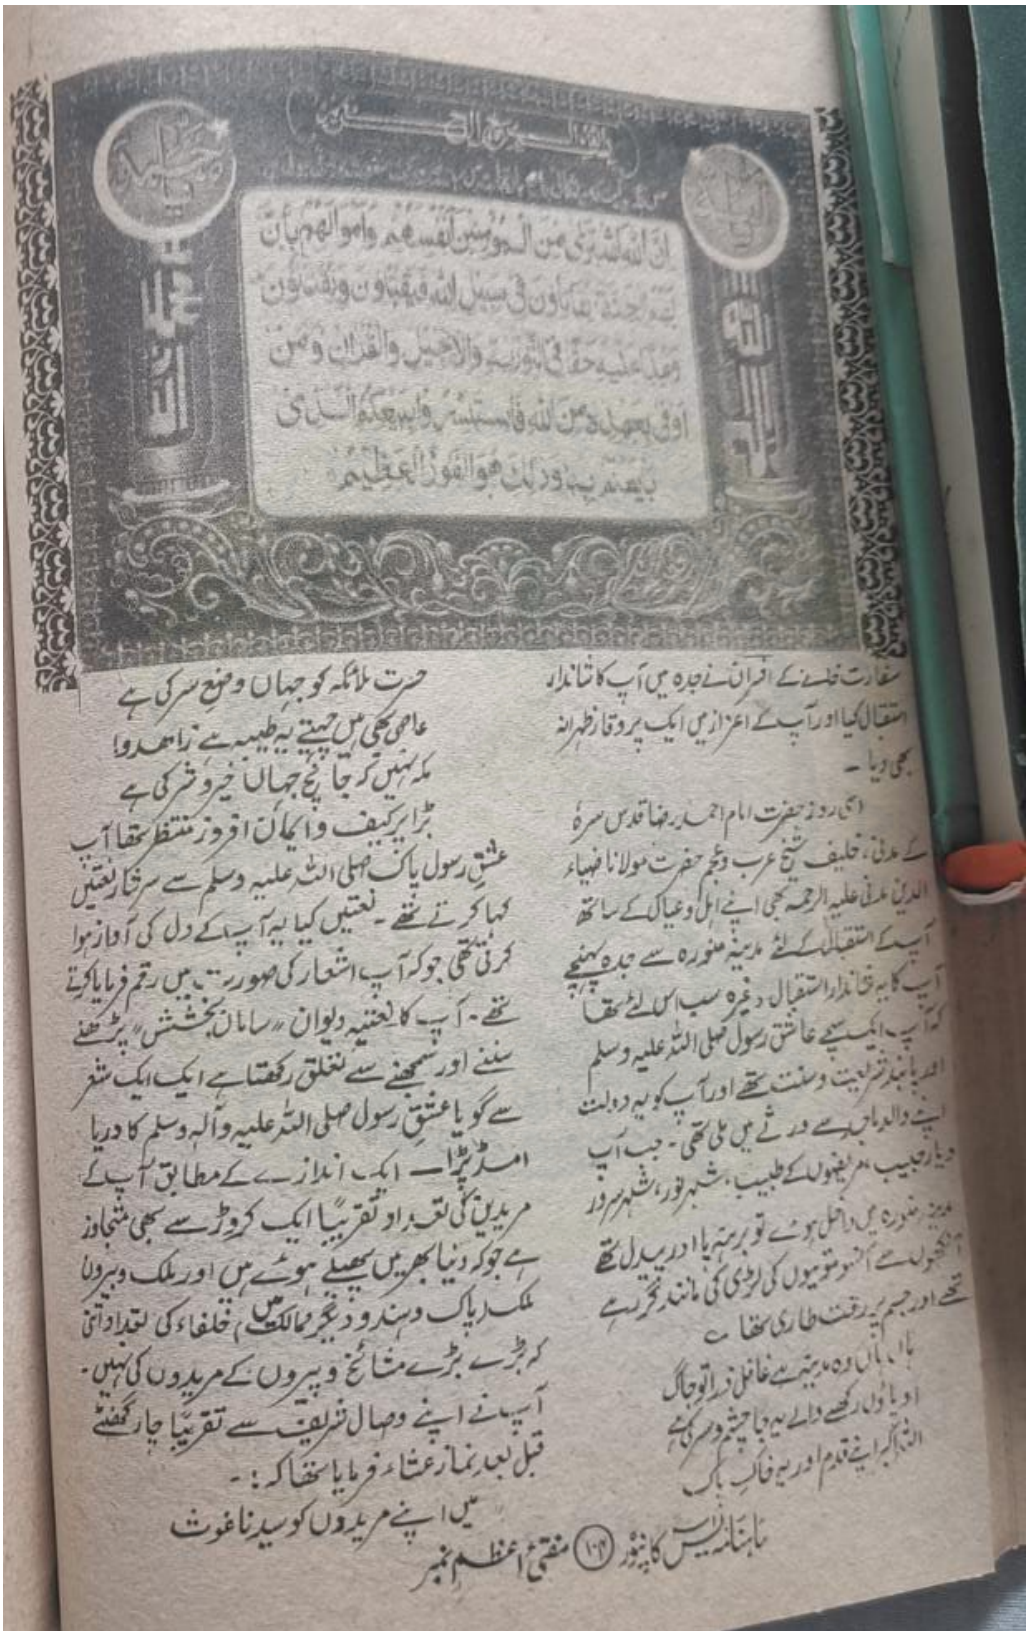 ان الله اشترى من المؤمنين انفسهم واموالهم بأن
فی سبیل الله فیقتلون ویقتلون
وعدا علیه حقا فی التورىة والانجیل والقران ومن
اوفی بعهده من الله فاستبشروا ببیعکم الذی
بایعتم به وذلک هو الفوز العظیم
سفارت خانے کے افسران نے جدہ میں آپ کا شاندار
استقبال کیا اور آپ کے اعزاز میں ایک پر وقار ظہرانہ
بھی دیا ـ
اسی روز حضرت امام احمد رضا قدس سرہٗ
کے مدنی، خلیفہ شیخ عرب وعجم حضرت مولانا ضیاء
الدین مدنی علیہ الرحمہ بھی اپنے اہل وعیال کے ساتھ
آپ کے استقبال کے لئے مدینہ منورہ سے جدہ پہنچے
آپ کا یہ شاندار استقبال وغیرہ سب اس لئے تھا
کہ آپ ایک سچے عاشق رسول صلی اللہ علیہ وسلم
اور پابند شریعت وسنت تھے اور آپ کو یہ دولت
اپنے والد ماجد سے ورثے میں ملی تھی ۔ جب آپ
دیار حبیب، مریضوں کے طبیب، شہر نور، شہر سرور
مدینہ منورہ میں داخل ہوئے تو برہنہ پا اور پیدل تھے
آنکھوں سے آنسو موتیوں کی لڑی کی مانند گر رہے
تھے اور جسم پر رقت طاری تھا ؎
ہاں ہاں وہ مدینہ ہے غافل ذرا تو جاگ
او پاؤں رکھنے والے یہ جا چشم وسر کی ہے
اللہ اکبر اپنے قدم اور یہ خاک پاک
حسرت ملائکہ کو جہاں وضع سر کی ہے
عاصی بھی ہیں چہیتے یہ طیبہ ہے زاہدو!
مکہ نہیں کہ جانچ جہاں خیر و شر کی ہے
بڑا پر کیف و ایمان افروز منظر تھا آپ
عشقِ رسول پاک صلی اللہ علیہ وسلم سے سرشار نعتیں
کہا کرتے تھے ۔ نعتیں کیا یہ آپ کے دل کی آواز ہوا
کرتی تھی جو کہ آپ اشعار کی صورت میں رقم فرمایا کرتے
تھے ۔ آپ کا نعتیہ دیوان "سامان بخشش" پڑھنے
سننے اور سمجھنے سے تعلق رکھتا ہے ایک ایک شعر
سے گویا عشقِ رسول صلی اللہ علیہ وآلہ وسلم کا دریا
امڈ پڑا ـــ ایک اندازے کے مطابق آپ کے
مریدین کی تعداد تقریباً ایک کروڑ سے بھی متجاوز
ہے جو کہ دنیا بھر میں پھیلے ہوئے ہیں اور ملک و بیرون
ملک (پاک و ہند و دیگر ممالک میں) خلفاء کی تعداد اتنی
کہ بڑے بڑے مشائخ و پیروں کے مریدوں کی نہیں ۔
آپ نے اپنے وصال شریف سے تقریباً چار گھنٹے
قبل بعد نماز عشاء فرمایا تھا کہ : ۔
میں اپنے مریدوں کو سیدنا غوث
ماہنامہ کانپور ۱۰۴ مفتیٔ اعظم نمبر